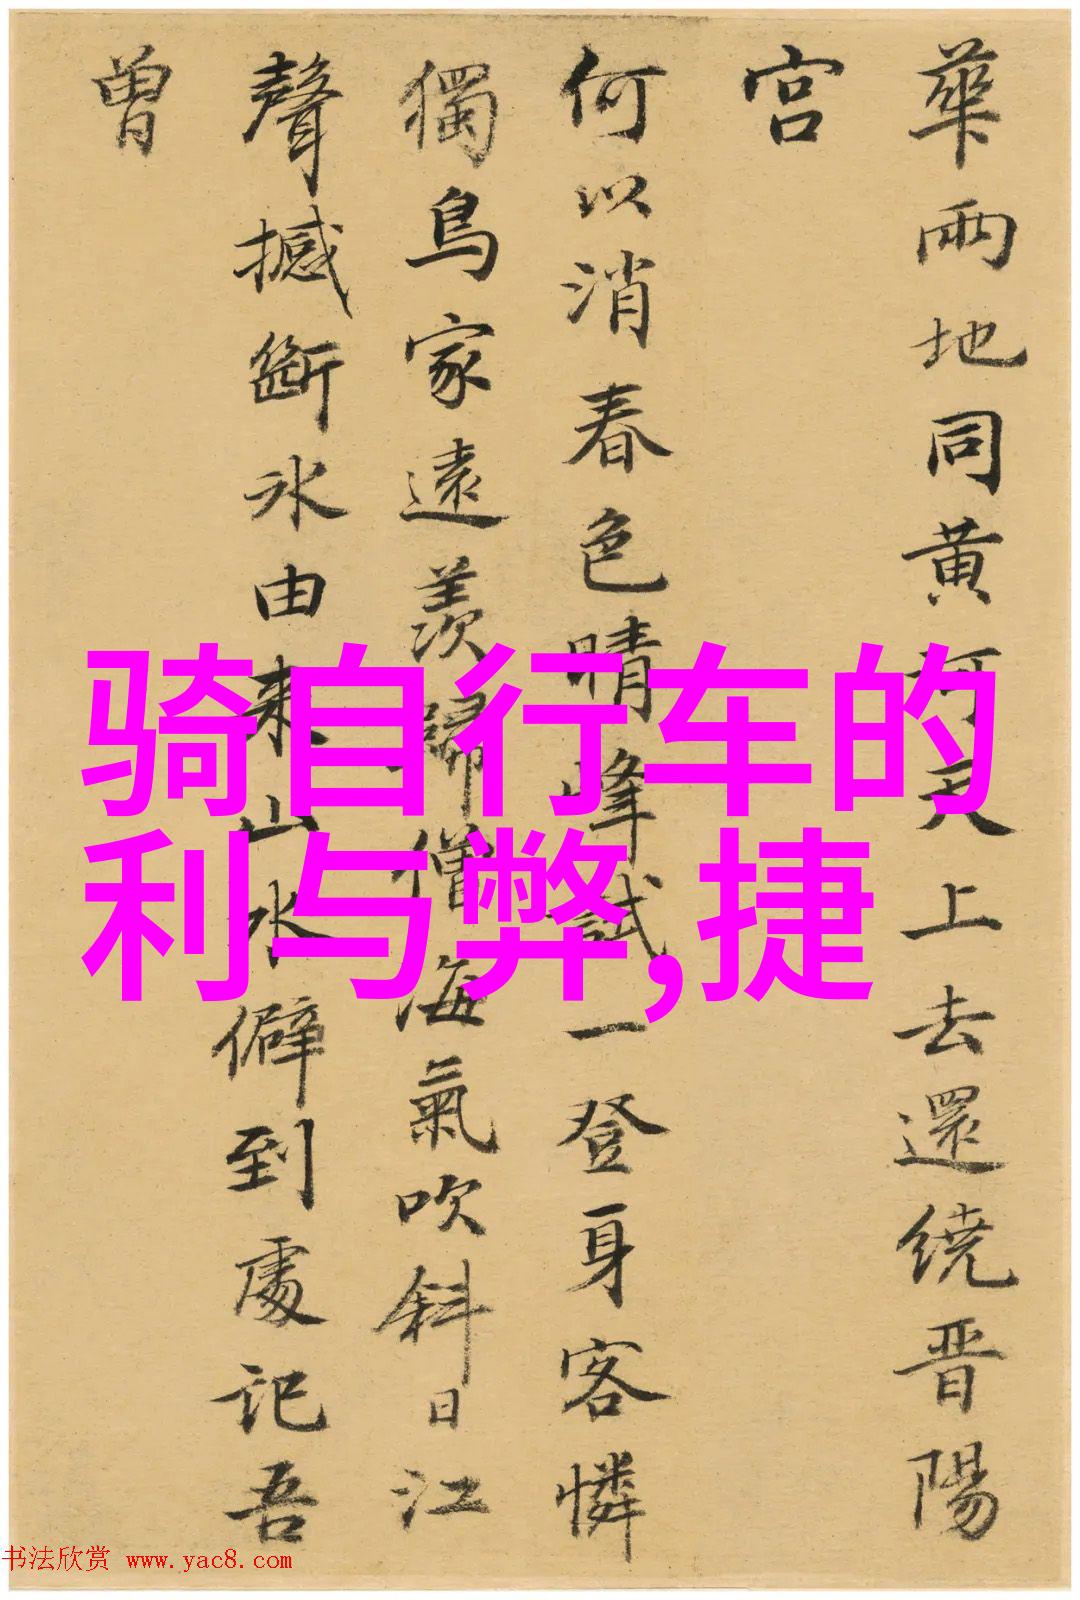 華兩地同黄河天上去還繞晋陽
宫
何以消春色晴峰試一登身客憐
獨鳥家遠羨歸僧海氣吹斜日江
聲撼斷冰由来山水僻到處記吾
曾
骑自行车的
利与弊,捷
书法欣赏 www.yac8.com